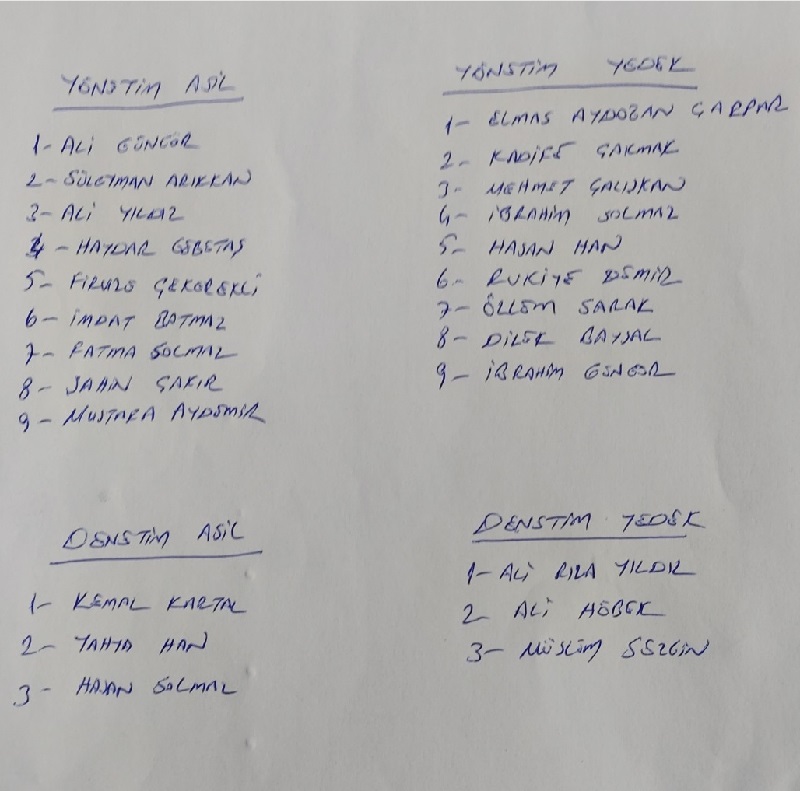 YÖNETİM ASİL
1- ALİ GÜNGÖR
2- SÜLEYMAN ARIKKAN
3- ALİ YILDIZ
4- HAYDAR GEBETAŞ
5- FİRUZE ÇEKEREKLİ
6- İMDAT BATMAZ
7- FATMA SOLMAZ
8- ŞAHİN ÇAKIR
9- MUSTAFA AYDEMİR
YÖNETİM YEDEK
1- ELMAS AYDOĞAN ÇARPAR
2- KADİFE ÇAKMAK
3- MEHMET ÇALIŞKAN
4- İBRAHİM SOLMAZ
5- HASAN HAN
6- RUKİYE DEMİR
7- ÖZLEM SARAK
8- DİLEK BAYSAL
9- İBRAHİM GÜNGÖR
DENETİM ASİL
1- KEMAL KARTAL
2- YAHYA HAN
3- HASAN SOLMAZ
DENETİM YEDEK
1- ALİ RIZA YILDIZ
2 ALİ HÖBEK
3- MÜSLÜM SEZGİN